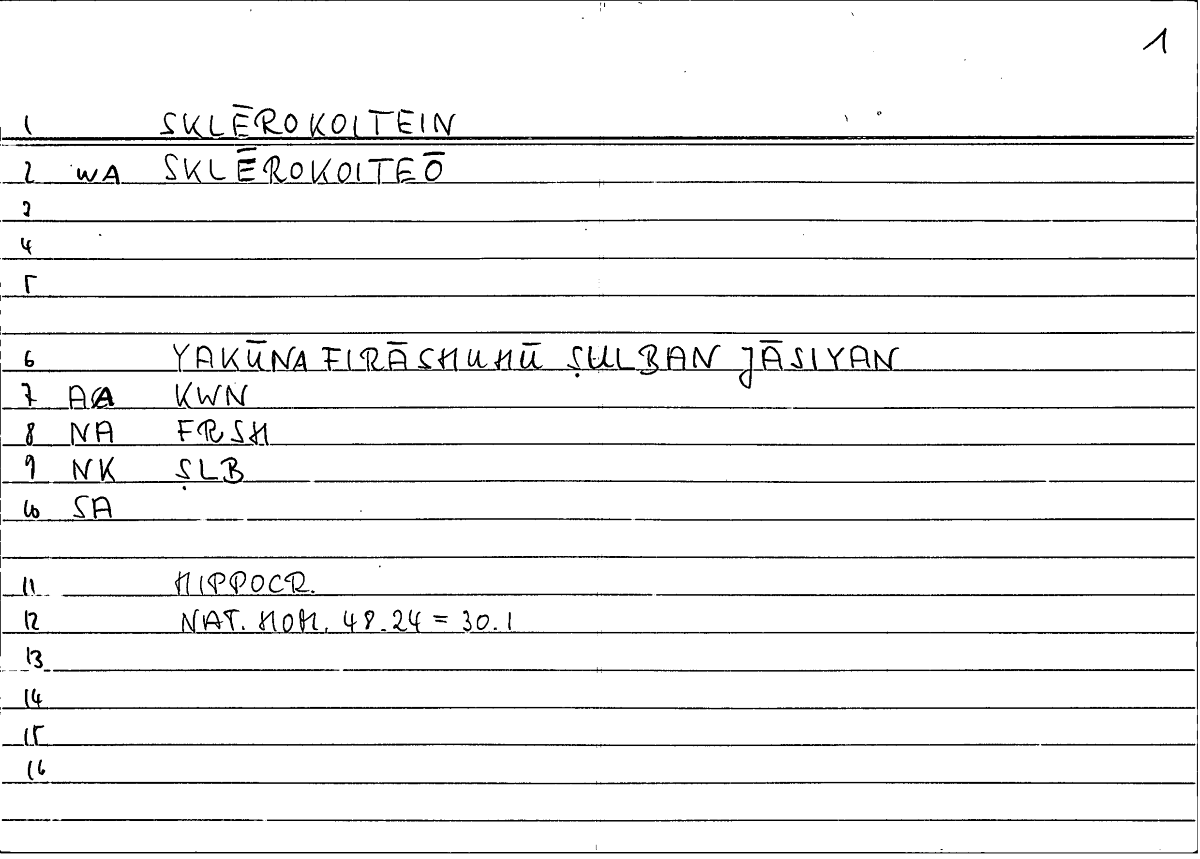 1
1 SKLĒROKOITEIN
2 WA SKLĒROKOITEŌ
3
4
5
6 YAKŪNA FIRĀSHUHŪ ṢULBAN JĀSIYAN
7 AA KWN
8 NA FRSH
9 NK ṢLB
10 SA
11 HIPPOCR.
12 NAT. HOM. 48.24 = 30.1
13
14
15
16